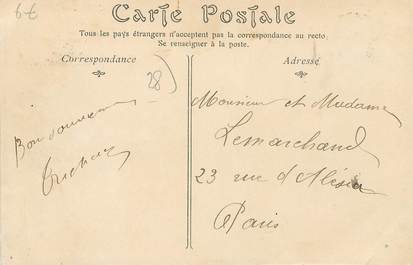 67
Carte Postale
Tous les pays étrangers n'acceptent pas la correspondance au recto.
Se renseigner à la poste.
Correspondance
28
Bon souvenir
Adressé
Monsieur et Madame
Lemarchand
23 rue d'Alésia
Paris